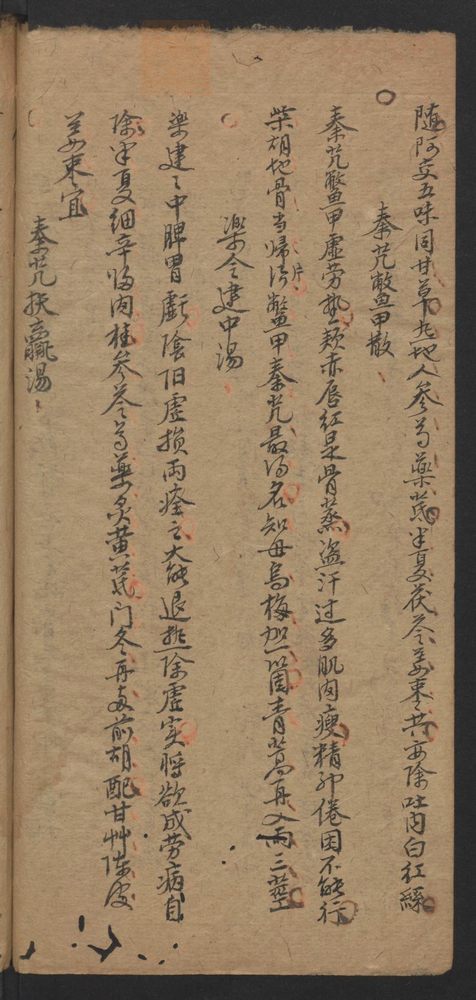 随阿交五味同甘草九地人参芍藥芪半夏茯苓姜枣共要除吐内白红絲
秦艽鳖甲散
秦艽鳖甲虚劳热颊赤唇红是骨蒸盗汗过多肌肉瘦精神倦困不能行
柴胡地骨当归片鳖甲秦艽最得名知母烏梅加一箇青蒿再入两三莖
樂令建中湯
樂建之中脾胃虧陰阳虚損両痊之大能退热除虚寔将欲成劳病自
除半夏细辛归肉桂参苓芍藥炙黄芪门冬再支前胡配甘艸陈皮
姜枣宜
秦艽扶羸湯